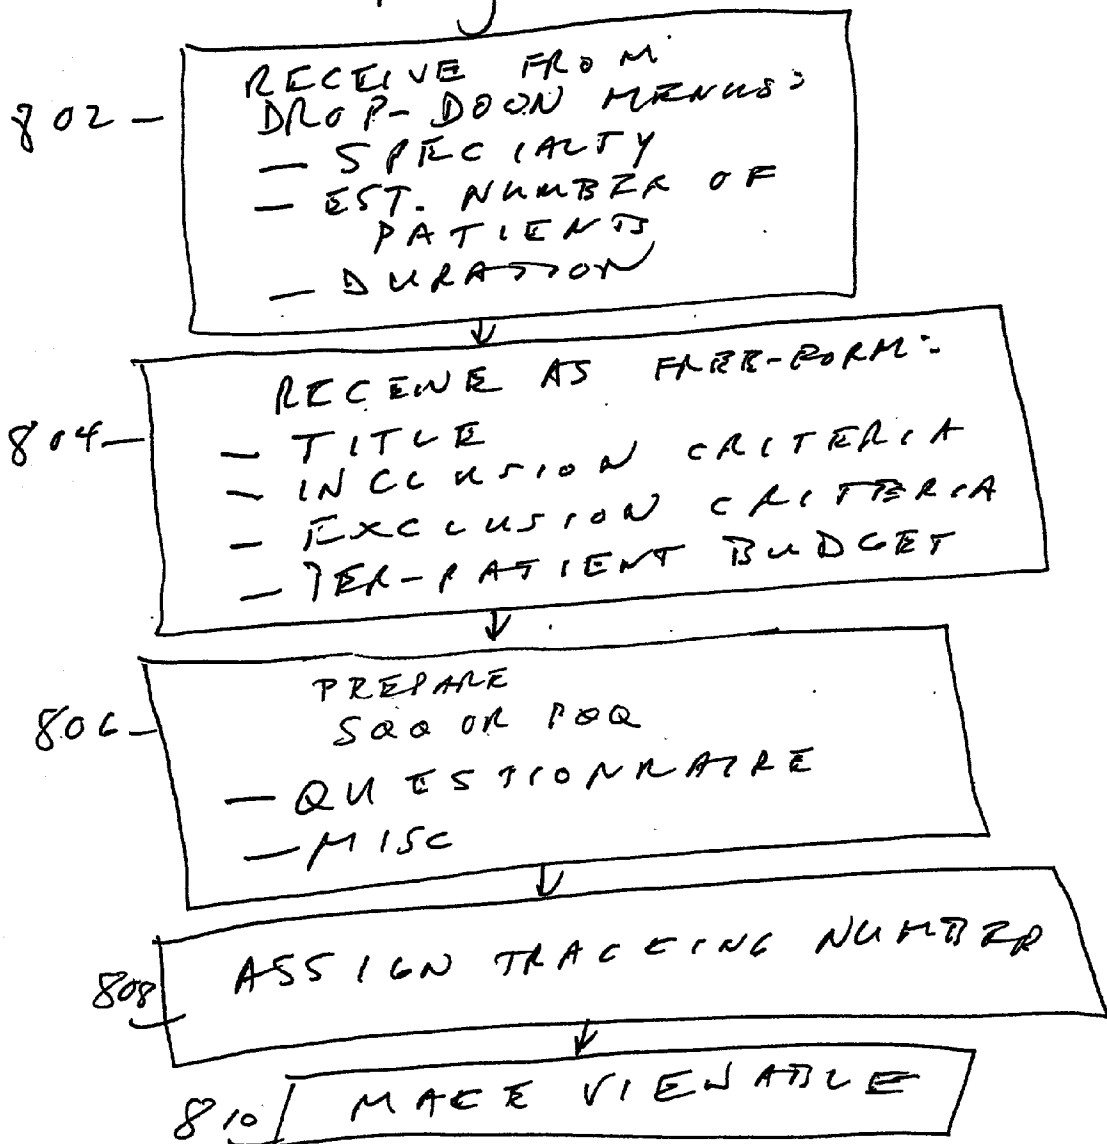 802 -
RECEIVE FROM
DROP-DOWN MENUS:
- SPECIALTY
- EST. NUMBER OF
PATIENTS
- DURATION
804 -
RECEIVE AS FREE-FORM:
- TITLE
- INCLUSION CRITERIA
- EXCLUSION CRITERIA
- PER-PATIENT BUDGET
806 -
PREPARE
SQQ OR PQQ
- QUESTIONNAIRE
- MISC
808
ASSIGN TRACKING NUMBER
810
MAKE VIEWABLE